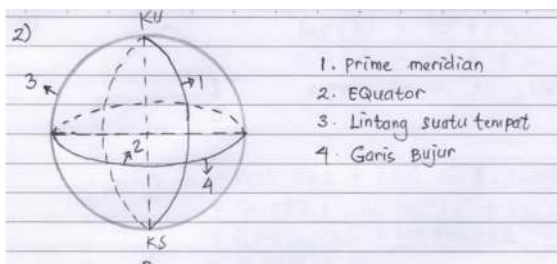 2)
KU
3
1
2
4
KS
1. Prime meridian
2. EQuator
3. Lintang suatu tempat
4. Garis Bujur